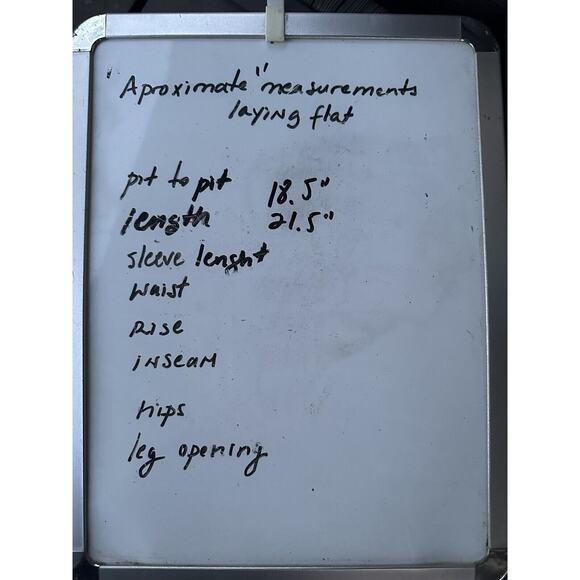 "Aproximate" measurements
laying flat
pit to pit 18.5"
length 21.5"
sleeve lenght
waist
Rise
inseam
hips
leg opening